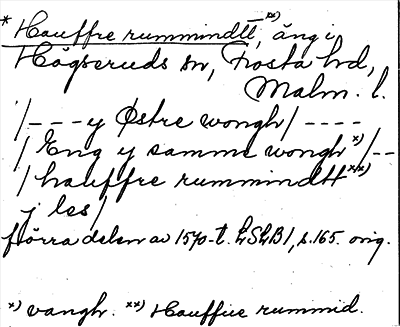 * Hauffre rummindtt xx), äng i
Högseruds sn, Frosta hd,
Malm. l.
/ - - - y Østre wongh / - - - -
/ Eng y samme wongh x) / - -
/ hauffre rummindtt xx)
j les /
förra delen av 1570-t. LSLB1, s. 165. orig.
x) vangh. xx) Hauffue rummid.